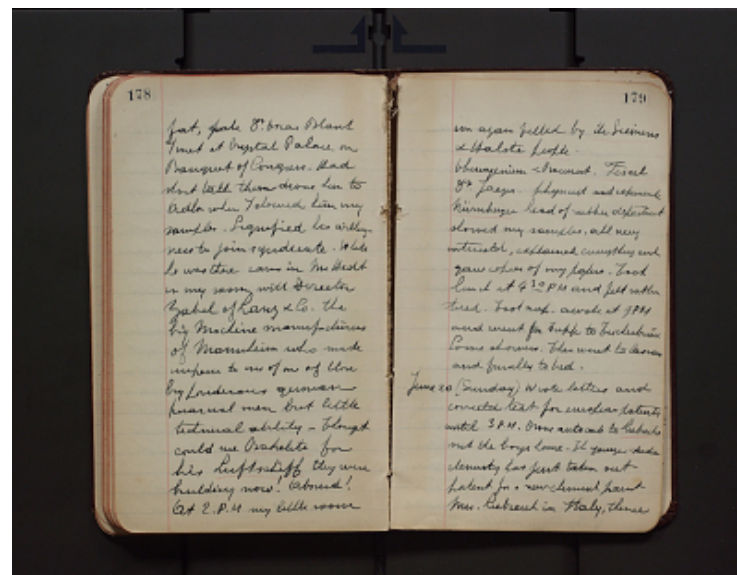 178
fat, pale Dr. Onas Blank
I met at Crystal Palace on
Banquet of Congress. Had
short talk then drove him to
Adlon where I showed him my
samples. Signified his willing-
ness to join syndicate. While
he was there came in Mr Stedt
in my room with Director
Zabel of Lanz & Co. the
big Machine manufacturers
of Mannheim who made
impression to me of one of those
big ponderous german
practical men but little
technical ability - Thought
could use Bakelite for
his Luftschiff they were
building now! Absurd!
At 2 P.M my little room
179
was again filled by the Siemens
& Halske people.
Tisch
Dr. Jaeger. physicist and
Nürnberger head of rubber department
showed my samples, all very
interested, explained everything and
gave copies of my papers. Took
lunch at 4 30 P M and felt rather
tired. Took nap. awoke at 9 PM
and went for
Then went to
and finally to bed.
June 20 (Sunday) Wrote letters and
corrected text for european patents
until 3 P.M. Drove auto cab to Liebreichs
met the boys home. The younger
chemistry has just taken out
patent for a new cement paint
Mrs. Liebreich in Italy, thence